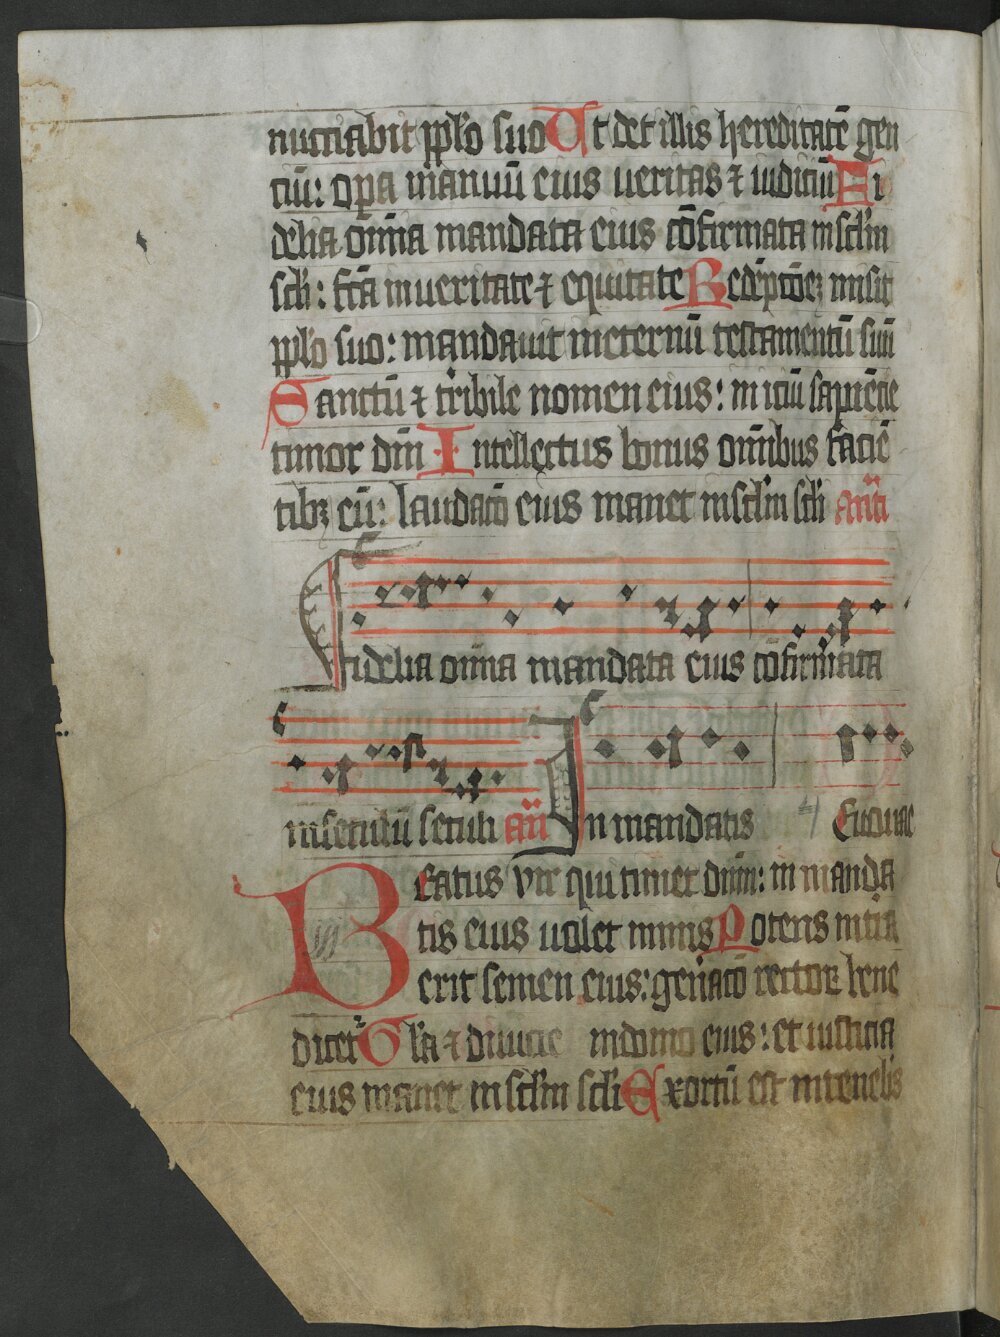 nuntiabit pplo suo Ut det illis hereditatē gen
tiū: opa manuū eius ueritas ⁊ iudiciū Fi
delia omīa mandata eius cōfirmata in sclm
scli: fcā in ueritate ⁊ equitate Redēptōeꝫ misit
pplo suo: mandauit in eternū testamentū suū
Sanctū ⁊ tribile nomen eius: iniciū sapiēcie
timor dnī Intellectus bonus omībus faciē
tibꝫ eū: laudatō eius manet in sclm scli anti
Fidelia omīa mandata eius cōfirmata
in seculū seculi añ In mandatis Euouae
Beatus vir qui timet dnm: in manda
tis eius uolet nimis Potens in tra
erit semen eius: genātō rectoꝝ bene
dicet Glīa ⁊ diuicie in domo eius: et iusticia
eius manet in sclm scli Exortū est in tenebis